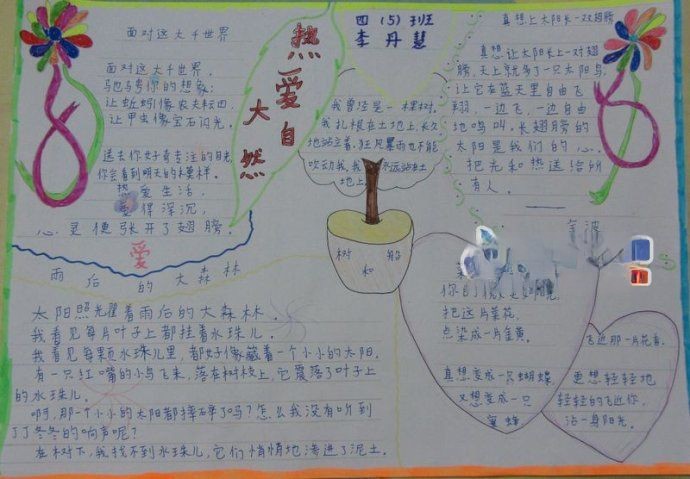 热爱
大自然
四（5）班
李丹慧
面对这大千世界
面对这大千世界，
驰骋你的想象：
让蚯蚓像农夫耘田，
让甲虫像宝石闪光。
送去你好奇专注的目光，
你会看到明天的模样。
热爱生活，
爱得深沉，
心灵便张开了翅膀。
爱
我曾经是一棵树，
我扎根在土地上，长久
地站立着，狂风暴雨也不能
吹动我，我
永远站在土
地上。
树
和
船
真想让太阳长一双翅膀
真想让太阳长上一对翅
膀，天上就多了一只太阳鸟，
让它在蓝天里自由飞
翔，一边飞，一边自由
地鸣叫。长翅膀的
太阳是我们的心。
把光和热送给所
有人。
雨后的大森林
太阳照耀着雨后的大森林。
我看见每片叶子上都挂着水珠儿。
我看见每颗水珠儿里，都好像藏着一个小小的太阳。
有一只红嘴的小鸟飞来，落在树枝上，它震落了叶子上
的水珠儿。
啊，那一个小小的太阳都摔碎了吗？怎么我没有听到
丁丁冬冬的响声呢？
在树下，我找不到水珠儿，它们悄悄地渗进了泥土。
把这片菜花，
点染成一片金黄。
真想变成一只蝴蝶，
又想变成一只
蜜蜂
飞近那一片花香，
更想轻轻地
轻轻的飞近你，
沾一身阳光。